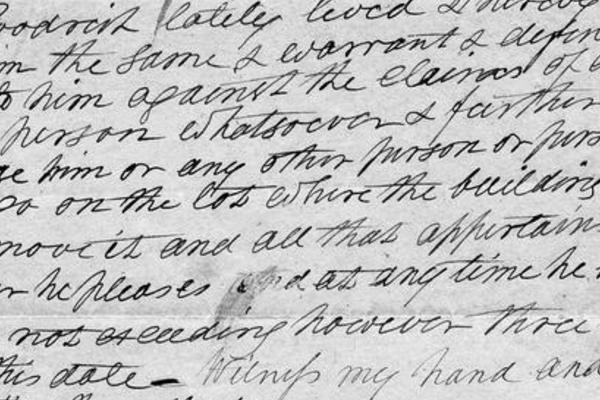 oodrich lately lived &
m the same & warrant & defen
to him against the claims of a
person whatsoever & further
ge him or any other person or pers
go on the lot where the building
move it and all that appertains
or he pleases and at any time he
not exceeding however three
this date - Witness my hand and